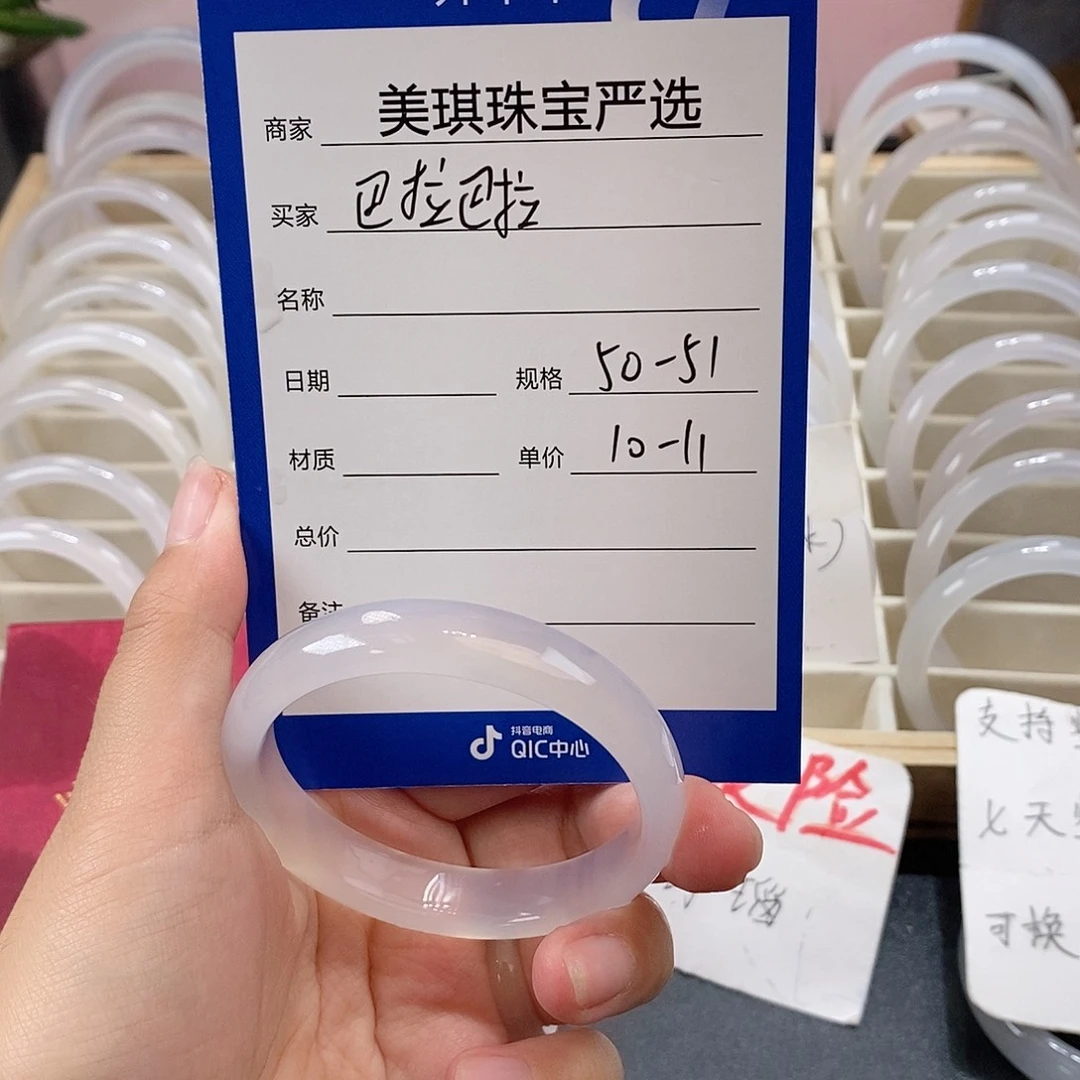 商家 美琪珠宝严选
买家 巴拉巴拉
名称
日期 规格 50-51
材质 单价 10-11
总价
备注
抖音电商
QIC中心
险
支持
七天
可换